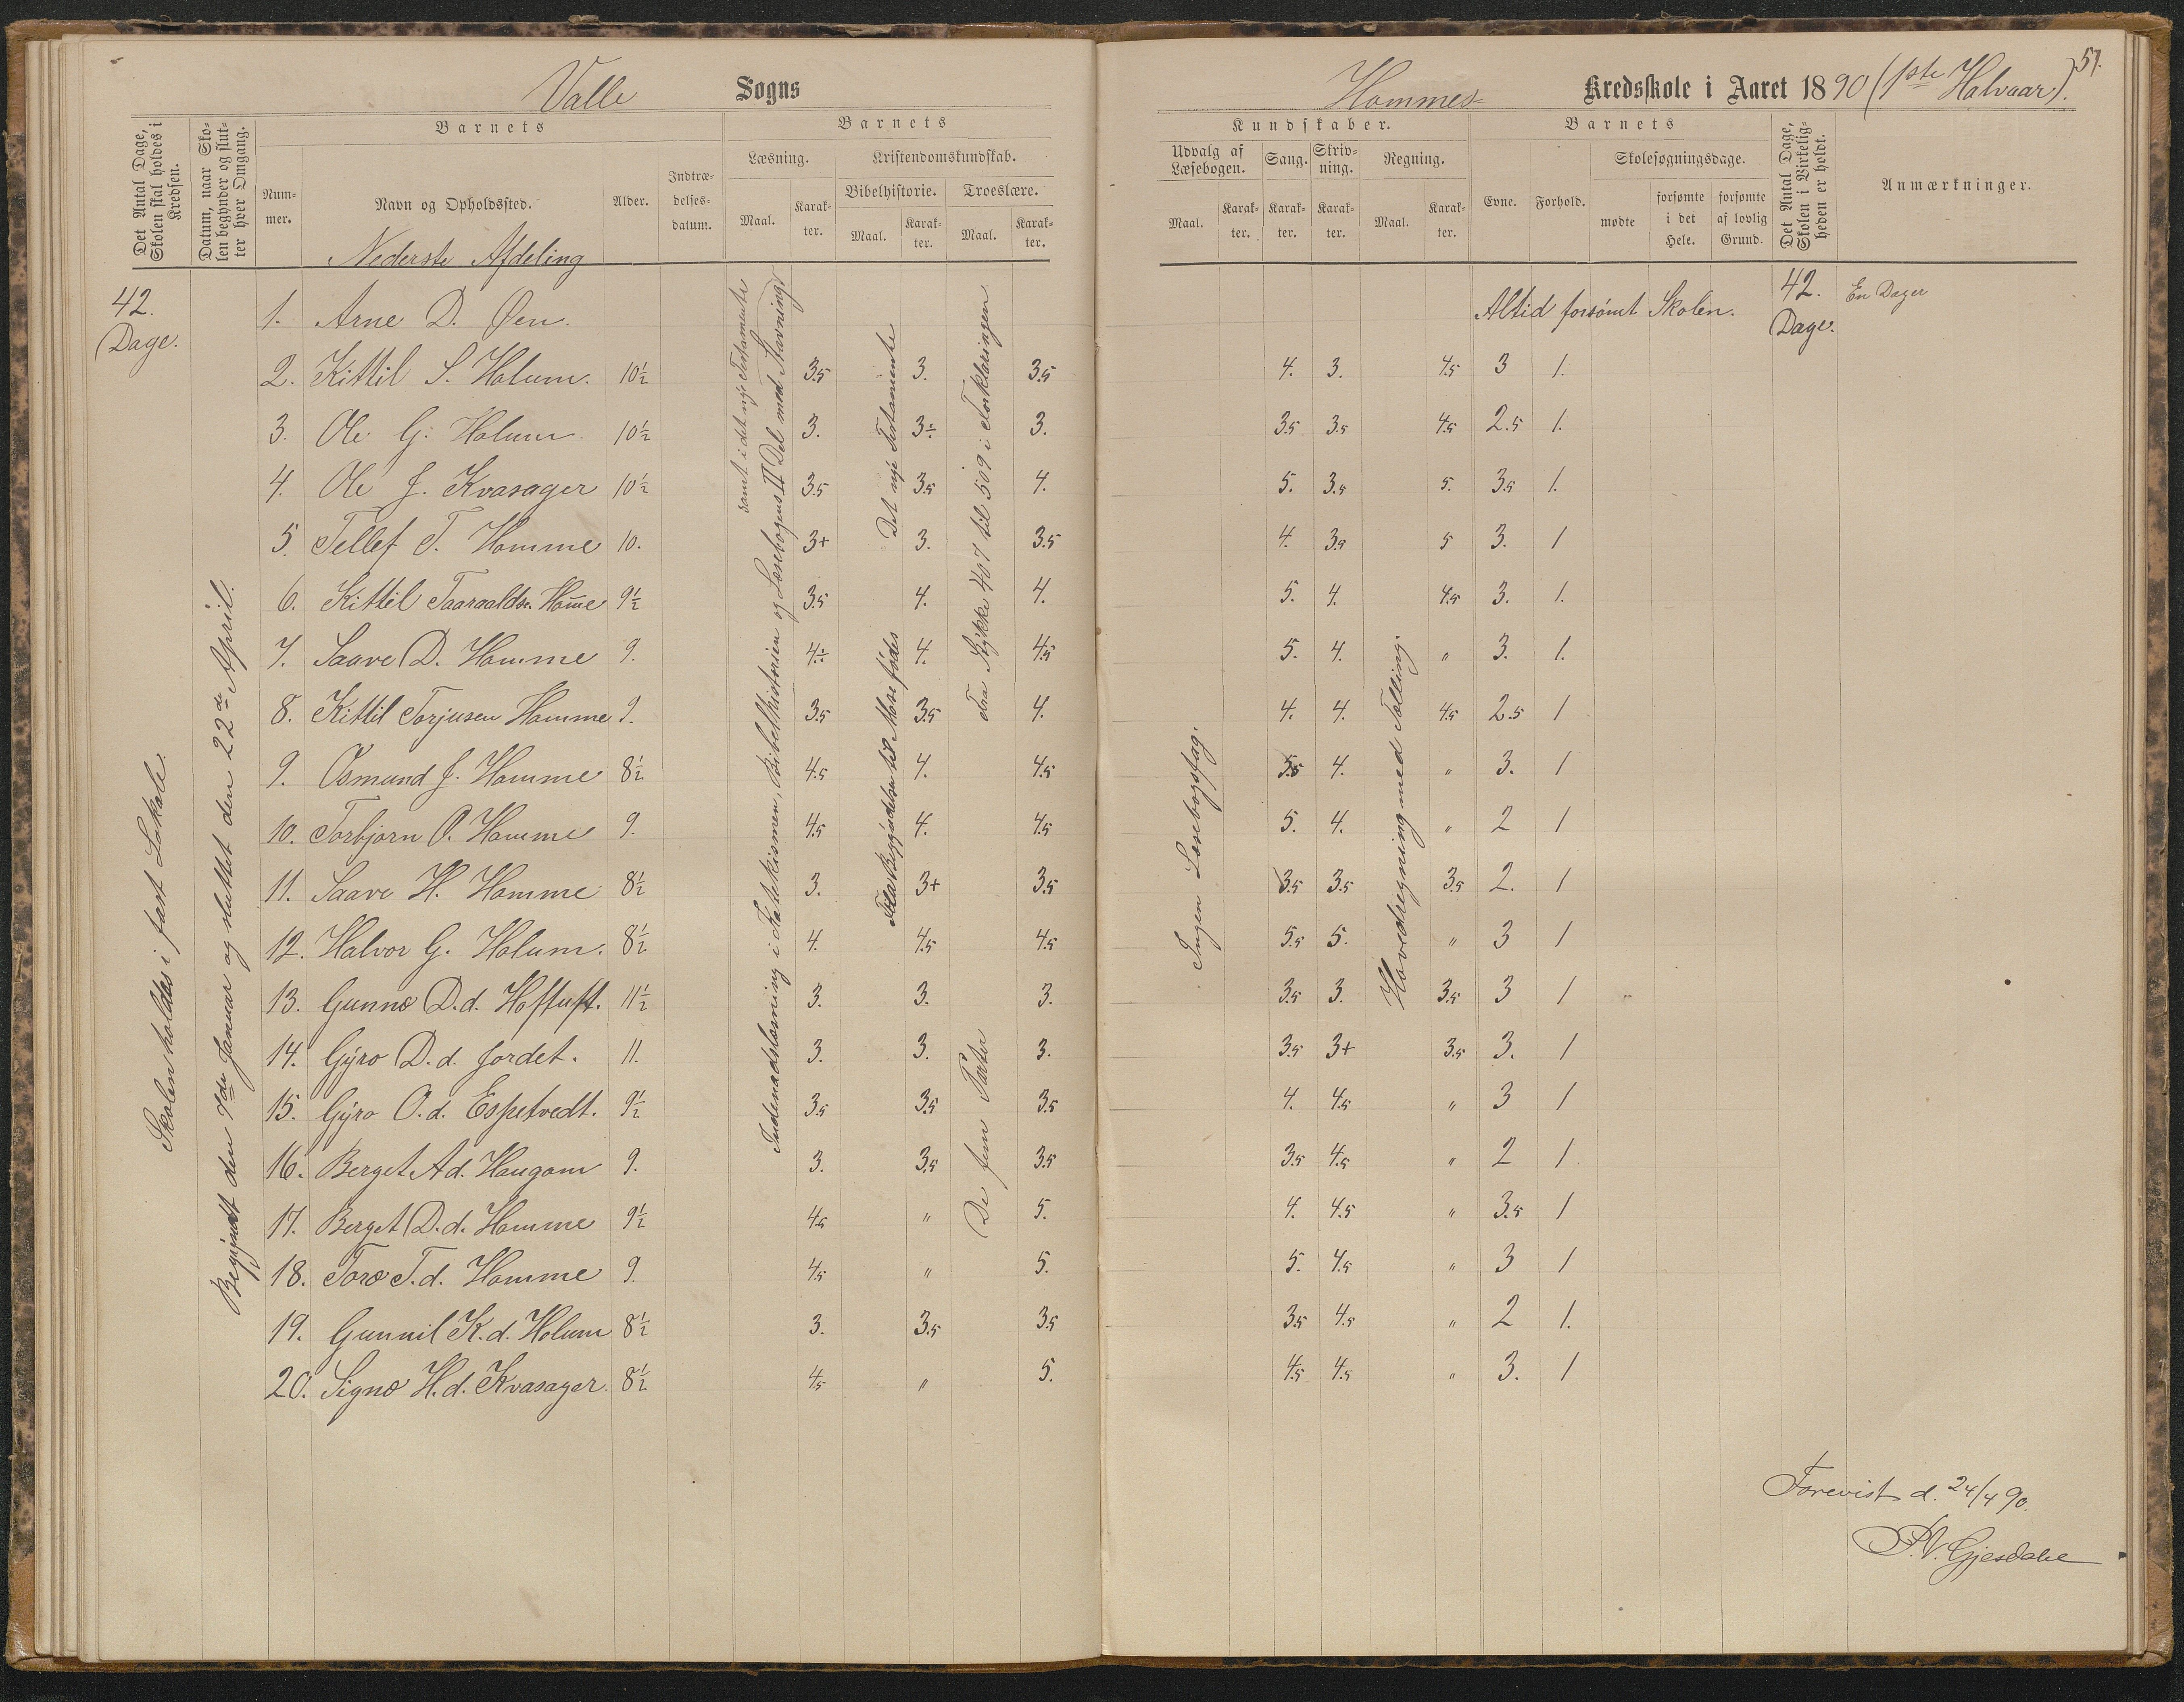 Valle Sogns
Det Antal Dage, Skolen skal holdes i Kredsen.
Datum, naar Skolen begynder og slutter hver Omgang.
Barnets
Nummer.
Navn og Opholdssted.
Alder.
Indtrædelsesdatum.
Barnets
Læsning.
Kristendomskundskab.
Bibelhistorie.
Troeslære.
Maal.
Karakter.
Maal.
Karakter.
Maal.
Karakter.
Nederste Afdeling
42. Dage.
Skolen holdes i fast Lokale.
Begyndt den 7de Januar og sluttet den 22de April.
Indenadslæsning i Katekismen, Bibelhistorien og Læsebogens II Del med Stavning,
samt i det nye Testamente
Fra Begyndelsen til Mose fødes
Det nye Testamente
Fra Stykke 407 til 509 i Forklaringen
De fem Parter
1. Arne D. Øen.
2. Kittil S. Holum. 10½ 3.5 3. 3.5
3. Ole G. Holum 10½ 3. 3÷ 3.
4. Ole J. Kvasager 10½ 3.5 3.5 4.
5. Tellef T. Homme 10. 3+ 3. 3.5
6. Kittil Taaraalds. Hom̅e 9½ 3.5 4. 4.
7. Saave D. Homme 9. 4÷ 4. 4.5
8. Kittil Torjusen Homme 9. 3.5 3.5 4.
9. Osmund J. Homme 8½ 4.5 4. 4.5
10. Torbjørn O. Homme 9. 4.5 4. 4.5
11. Saave H. Homme 8½ 3. 3+ 3.5
12. Halvor G. Holum. 8½ 4. 4.5 4.5
13. Gunno D.d. Hoftuft. 11½ 3. 3. 3.
14. Gyro D.d. Jordet. 11. 3. 3. 3.
15. Gyro O.d. Espetvedt. 9½ 3.5 3.5 3.5
16. Berget A d. Haugom 9. 3. 3.5 3.5
17. Berget D.d. Homme 9½ 4.5 " 5.
18. Toro T.d. Homme 9. 4.5 " 5.
19. Gunnil K.d. Holum 8½ 3. 3.5 3.5
20. Signo H.d. Kvasager 8½ 4.5 " 5.
51.
Hommes= Kredsskole i Aaret 1890 (1ste Halvaar).
Kundskaber.
Udvalg af Læsebogen.
Sang.
Skrivning.
Regning.
Maal.
Karakter.
Karakter.
Karakter.
Maal.
Karakter.
Barnets
Evne.
Forhold.
Skolesøgningsdage.
mødte
forsømte i det Hele.
forsømte af lovlig Grund.
Det Antal Dage, Skolen i Virkeligheden er holdt.
Anmærkninger.
Ingen Læsebogsfag.
Hovedregning med Tælling.
Altid forsømt Skolen. 42. Dage. En Dager
4. 3. 4.5 3 1.
3.5 3.5 4.5 2.5 1.
5. 3.5 5. 3.5 1.
4. 3.5 5 3. 1
5. 4. 4.5 3. 1.
5. 4. " 3. 1.
4. 4. 4.5 2.5 1
5.5 4. " 3. 1
5. 4. " 2 1
3.5 3.5 3.5 2. 1
5.5 5. " 3 1
3.5 3. 3.5 3 1
3.5 3+ 3.5 3. 1
4. 4.5 " 3 1
3.5 4.5 " 2 1.
4. 4.5 " 3.5 1
5. 4.5 " 3 1
3.5 4.5 " 2 1.
4.5 4.5 " 3. 1
Forevist d. 24/4 90.
P.V. Gjesdahl